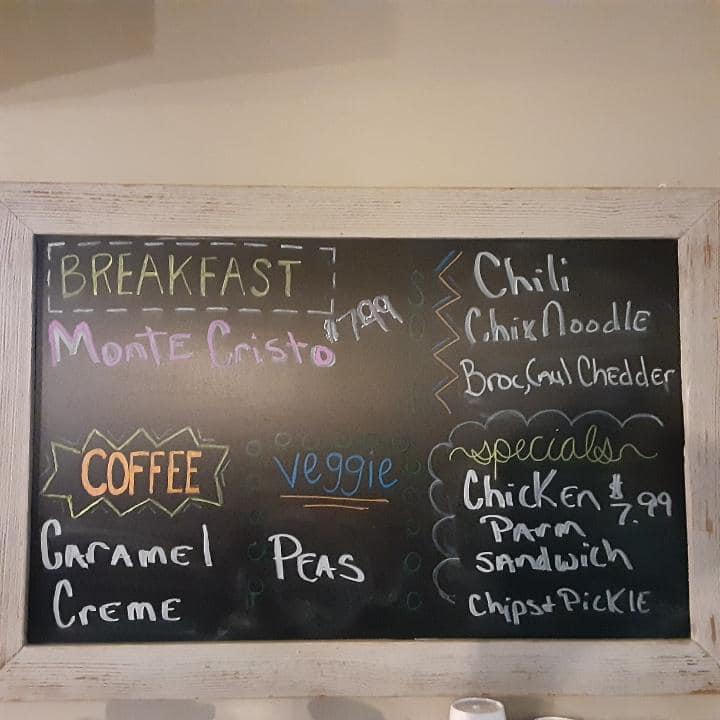 BREAKFAST
Monte Cristo $7.99
COFFEE
Caramel
Creme
veggie
PEAS
SOUP
Chili
Chix Noodle
Broc,Caul Chedder
specials
Chicken $7.99
Parm
Sandwich
Chips & PICKLE